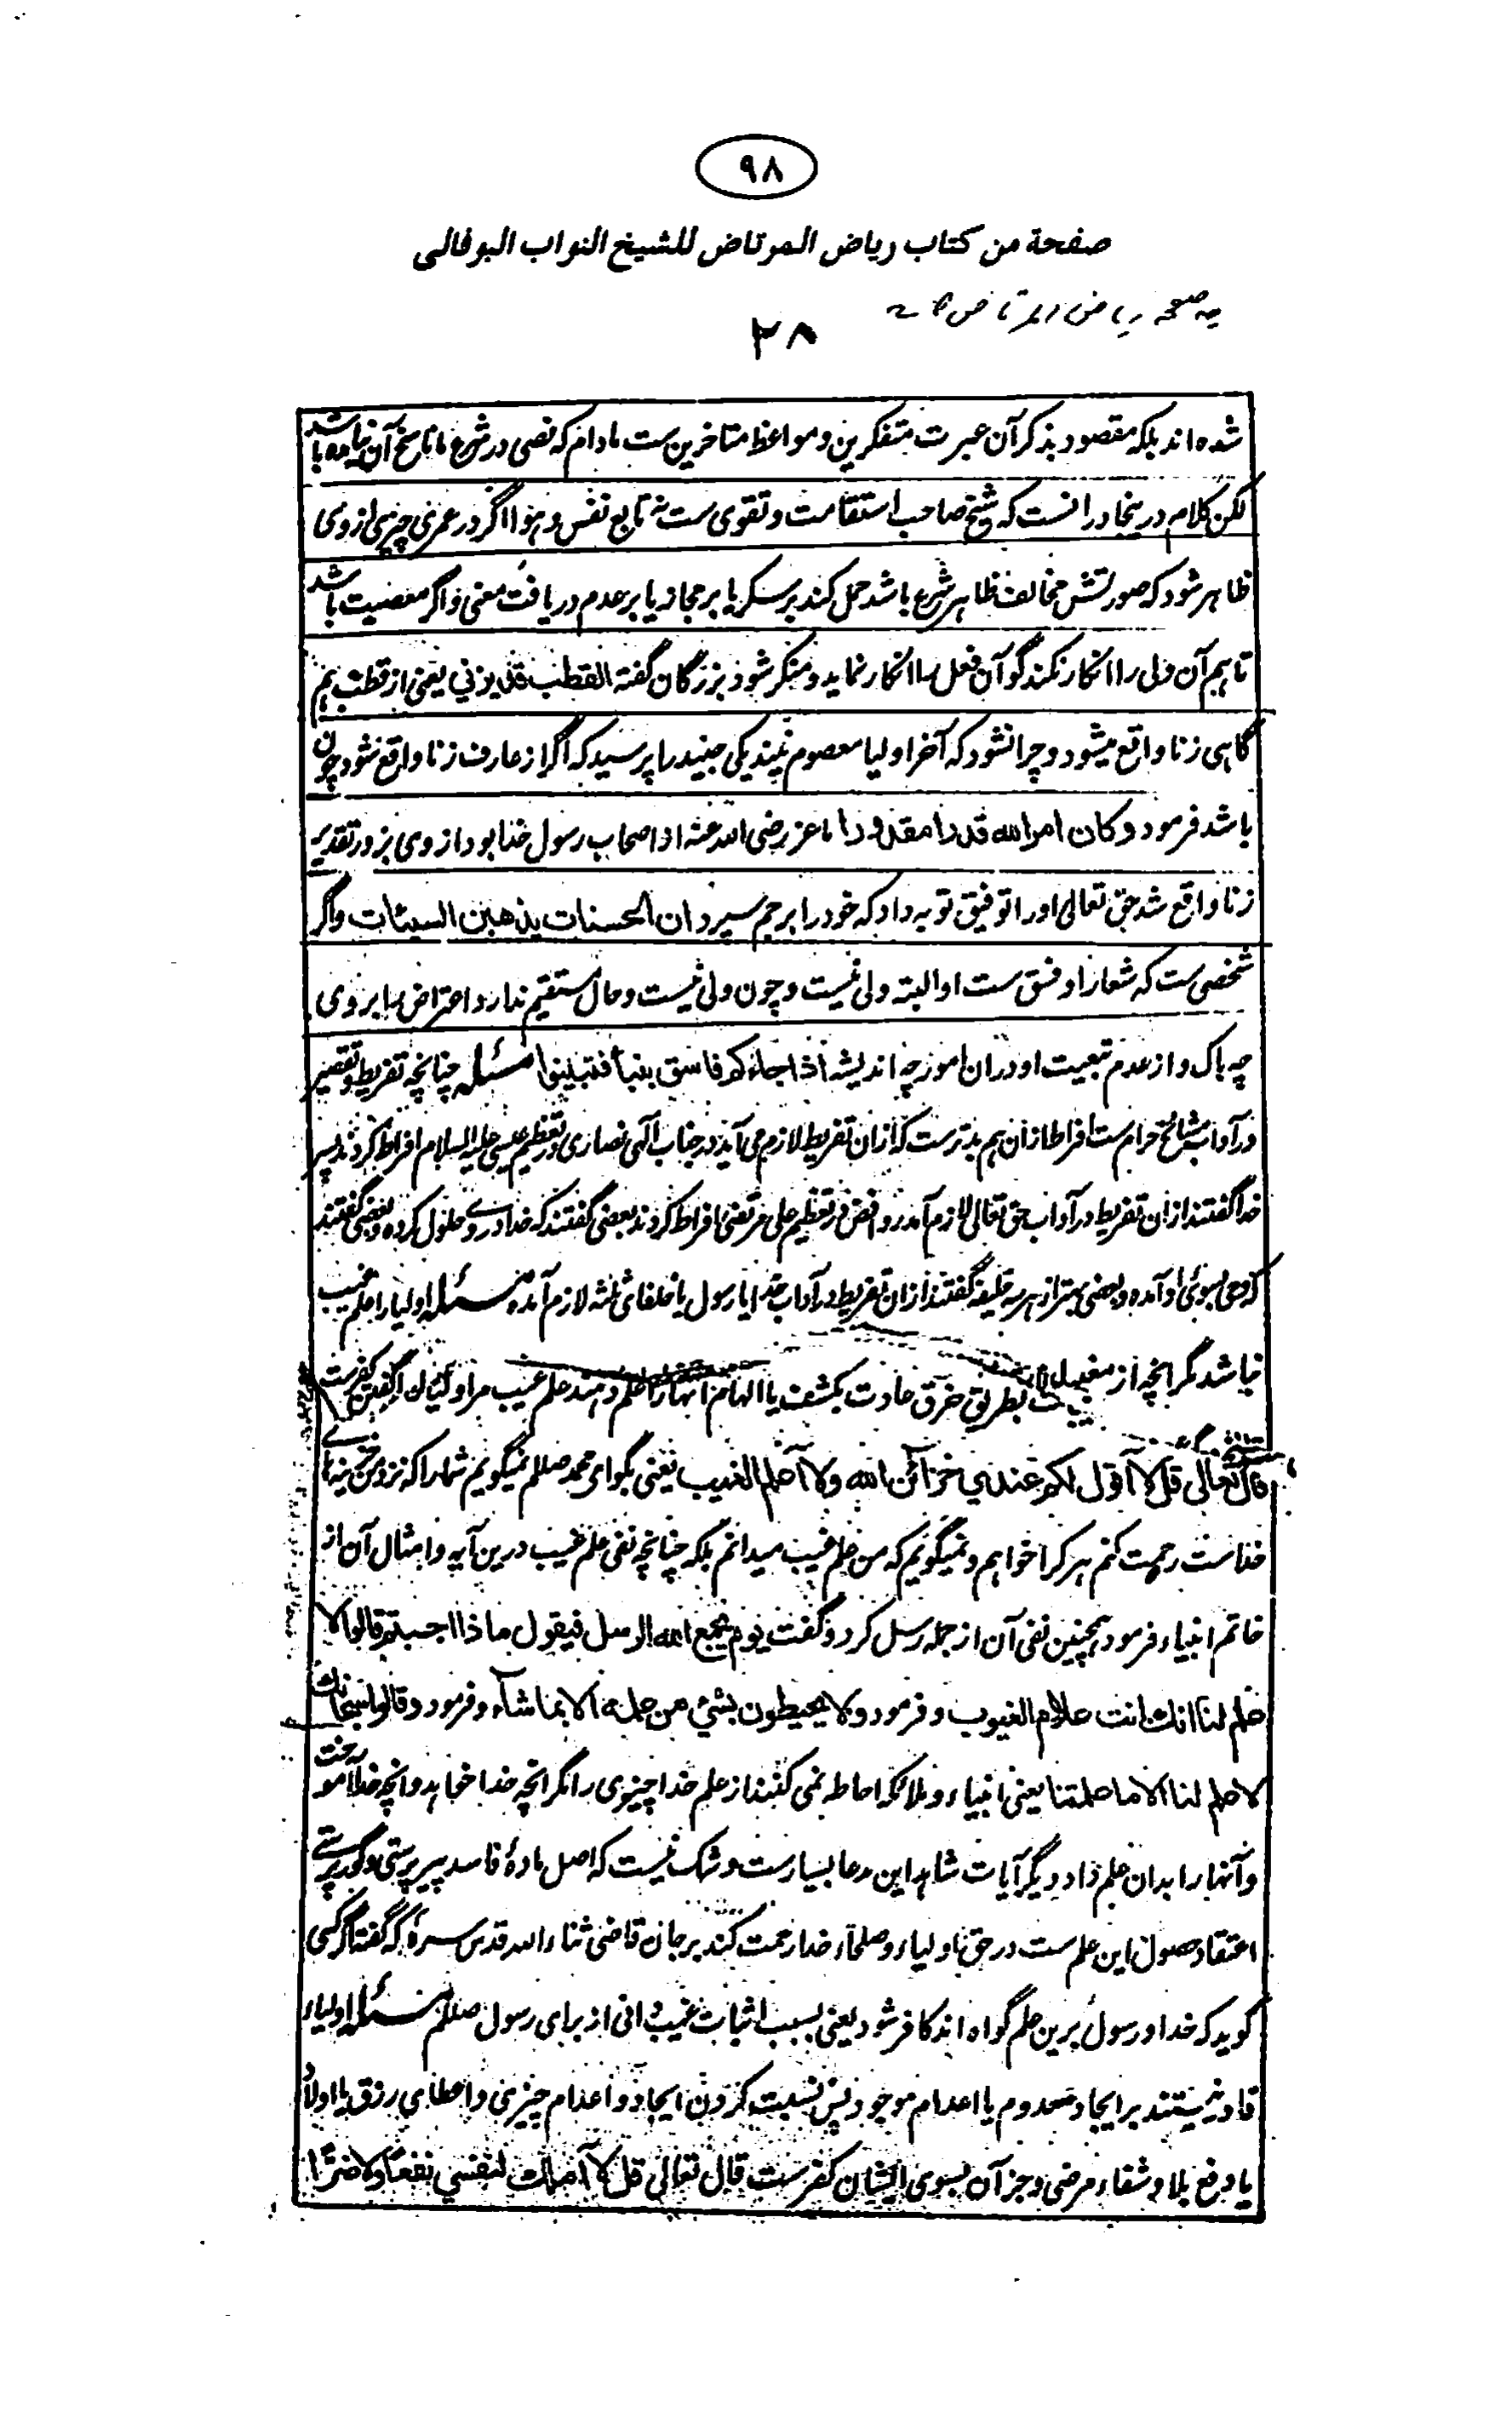 ۹۸
صفحة من كتاب رياض المرتاض للشيخ النواب البوفالى
۲۸
شده اند بلکه مقصود بذکر آن عبرت متفکرین و مواعظ متاخرین ست مادام که نصی در شرع ما ناسخ آن نیامده باشد
لکن کلام درینجا درانست که شیخ صاحب استقامت و تقوی ست نه تابع نفس و هوا اگر در عمری چیزی از وی
ظاهر شود که صورتش مخالف ظاهر شرع باشد حمل کند بر سکر یا بر مجاز یا بر عدم دریافت معنی و اگر معصیت باشد
تا هم آن ولی را انکار نکند گو آن فعل را انکار نماید و منکر شود بزرگان گفته القطب قد یزنی یعنی از قطب هم
گاهی زنا واقع میشود و چرا نشود که آخر اولیا معصوم نیند یکی جنید را پرسید که اگر از عارف زنا واقع نشود چون
باشد فرمود و کان امر الله قدرا مقدورا ماعز رضی الله عنه از اصحاب رسول خدا بود از وی بزور تقدیر
زنا واقع شد حق تعالی او را توفیق توبه داد که خود را برجم سپرد ان الحسنات یذهبن السیئات و اگر
شخصی ست که شعار او فسق ست او البته ولی نیست و چون ولی نیست و حال مستقیم ندارد اعتراض را بر وی
چه باک و از عدم تبعیت او در ان امور چه اندیشه اذا جاءکم فاسق بنبأ فتبینوا مسئله چنانچه تفریط و تقصیر
در آداب مشائخ حرام ست افراط ازان هم بدترست که ازان تفریط لازم می آید در جناب الهی نصاری در تعظیم عیسی علیه السلام افراط کردند پسر
خدا گفتند ازان تفریط در آداب حق تعالی لازم آمد روافض در تعظیم علی مرتضی افراط کردند بعضی گفتند که خدا در وے حلول کرده و بعضی گفتند
که وحی بسوی او آمده و بعضی بهتر از هر سه خلیفه گفتند ازان تفریط در آداب خدا یا رسول یا خلفای ثلثه لازم آمده مسئله اولیا را علم غیب
نباشد مگر آنچه از بطریق خرق عادت بکشف یا الهام آنها را علم دهند علم غیب مر اولیا را گفتن کفرست
قال تعالی قل لا اقول لکم عندی خزائن الله ولا اعلم الغیب یعنی بگو ای محمد صللم نمیگویم شما را که نزد من خزینهای
خداست رحمت کنم هر کرا خواهم و نمیگویم که من علم غیب میدانم بلکه چنانچه نفی علم غیب درین آیه و امثال آن از
خاتم انبیاء فرمود همچنین نفی آن از جمله رسل کرد و گفت یوم یجمع الله الرسل فیقول ماذا اجبتم قالوا لا
علم لنا انک انت علام الغیوب و فرمود ولا یحیطون بشیء من علمه الا بما شاء و فرمود و قالوا سبحانک
لا علم لنا الا ما علمتنا یعنی انبیاء و ملائکه احاطه نمی کنند از علم خدا چیزی را مگر آنچه خدا خواهد و آنچه خدا آموخت
و آنها را بدان علم داد و دیگر آیات شاهد این مدعا بسیارست و شک نیست که اصل مادهٔ فاسد پیر پرستی و گور پرستے
اعتقاد حصول این علم ست در حق اولیاء و صلحاء خدا رحمت کند بر جان قاضی ثناء الله قدس سره که گفته اگر کسی
گوید که خدا و رسول برین علم گواه اند کافر شود یعنی بسبب اثبات غیب دانی از برای رسول صللم مسئله اولیاء
قادر نیستند بر ایجاد معدوم یا اعدام موجود پس نسبت کردن ایجاد و اعدام چیزی و اعطای رزق یا اولاد
یا دفع بلا و شفاء مرضی و جز آن بسوی ایشان کفرست قال تعالی قل لا املک لنفسی نفعا ولا ضرا